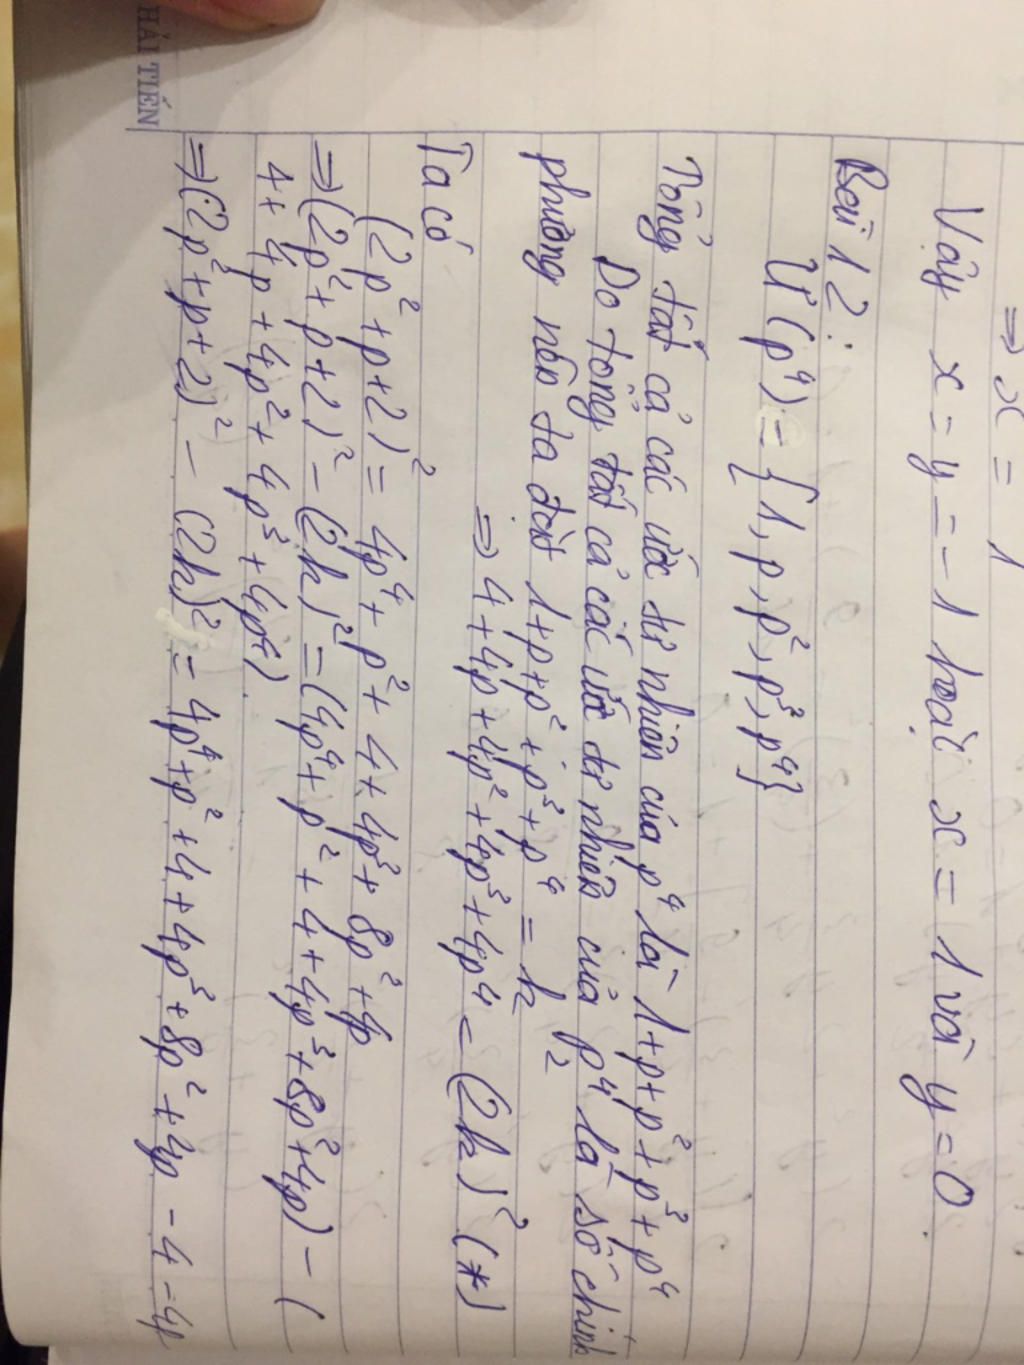 ⇒ x = 1
Vậy x = y = -1 hoặc x = 1 và y = 0.
Bài 12:
Ư(p⁴) = {1, p, p², p³, p⁴}
Tổng tất cả các ước tự nhiên của p⁴ là 1+p+p²+p³+p⁴
Do tổng tất cả các ước tự nhiên của p⁴ là số chính
phương nên ta đặt 1+p+p²+p³+p⁴ = k²
⇒ 4+4p+4p²+4p³+4p⁴ = (2k)² (*)
Ta có
(2p²+p+2)² = 4p⁴+p²+4+4p³+8p²+4p
⇒ (2p²+p+2)² - (2k)² = (4p⁴+p²+4+4p³+8p²+4p) - (
4+4p+4p²+4p³+4p⁴)
⇒ (2p²+p+2)² - (2k)² = 4p⁴+p²+4+4p³+8p²+4p - 4 - 4p
HẢI TIẾN